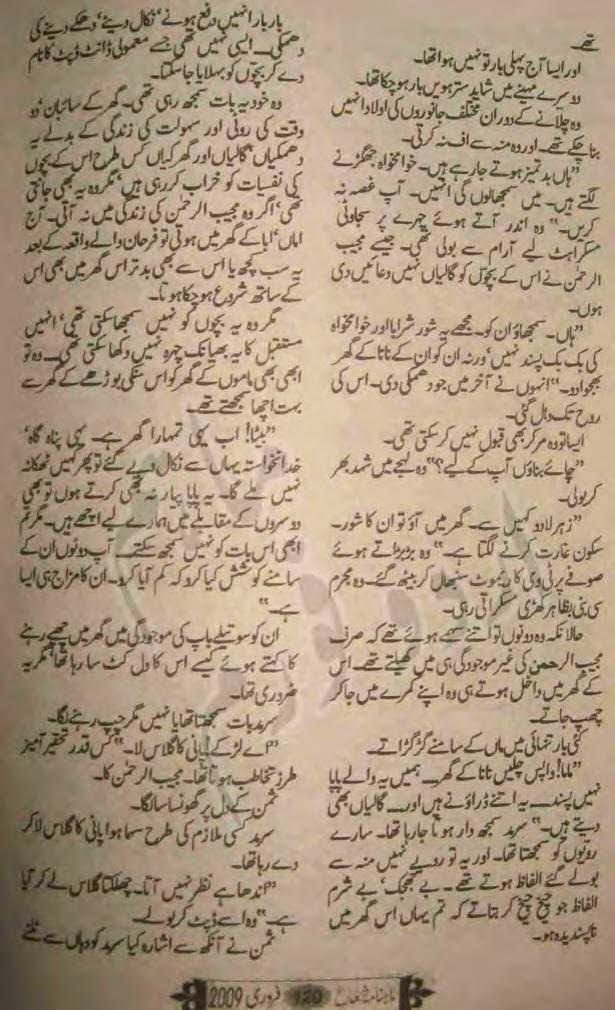 تھے۔
اور ایسا آج پہلی بار تو نہیں ہوا تھا۔
دوسرے مہینے میں شاید سترھویں بار ہو چکا تھا۔
وہ چلانے کے دوران مختلف جانوروں کی اولاد انہیں
بنا چکے تھے۔ اور وہ منہ سے اف نہ کرتی۔
"ہاں بدتمیز ہوتے جا رہے ہیں۔ خوامخواہ جھگڑنے
لگتے ہیں۔ میں سمجھالوں گی انہیں۔ آپ غصہ نہ
کریں۔" وہ اندر آتے ہوئے چہرے پر سجاوٹی
مسکراہٹ لیے آرام سے بولی تھی۔ جیسے مجیب
الرحمٰن نے اس کے بچوں کو گالیاں نہیں دعائیں دی
ہوں۔
"ہاں۔ سمجھاؤ ان کو۔ مجھے یہ شور شرابا اور خوامخواہ
کی بک بک پسند نہیں' ورنہ ان کو ان کے نانا کے گھر
بھجوا دو۔" انہوں نے آخر میں جو دھمکی دی۔ اس کی
روح تک دہل گئی۔
ایسا تو وہ مر کر بھی قبول نہیں کر سکتی تھی۔
"چائے بناؤں آپ کے لیے؟" وہ لہجے میں شہد بھر
کر بولی۔
"زہر لا دو کہیں سے۔ گھر میں آؤ تو ان کا شور۔
سکون غارت کرنے لگتا ہے۔" وہ بڑبڑاتے ہوئے
صوفے پر ٹی وی کا ریموٹ سنبھال کر بیٹھ گئے۔ وہ مجرم
سی بنی بظاہر کھڑی مسکراتی رہی۔
حالانکہ وہ دونوں تو اتنے سہمے ہوئے تھے کہ صرف
مجیب الرحمن کی غیر موجودگی ہی میں کھیلتے تھے۔ اس
کے گھر میں داخل ہوتے ہی وہ اپنے کمرے میں جا کر
چھپ جاتے۔
کئی بار تنہائی میں ماں کے سامنے گڑگڑاتے۔
"ماما! واپس چلیں نانا کے گھر۔ ہمیں یہ والے پاپا
نہیں پسند۔ یہ اتنے ڈراؤنے ہیں اور۔ گالیاں بھی
دیتے ہیں۔" سرمد سمجھ دار ہوتا جا رہا تھا۔ سارے
رویوں کو سمجھتا تھا۔ اور یہ تو رویے نہیں منہ سے
بولے گئے الفاظ ہوتے تھے۔ بے جھجک' بے شرم
الفاظ جو چیخ چیخ کر بتاتے کہ تم یہاں اس گھر میں
ناپسندیدہ ہو۔
بار بار انہیں دفع ہونے' نکال دینے' دھکے دینے کی
دھمکی۔ ایسی نہیں تھی جسے معمولی ڈانٹ ڈپٹ کا نام
دے کر بچوں کو بہلایا جا سکتا۔
وہ خود یہ بات سمجھ رہی تھی۔ گھر کے سائبان' دو
وقت کی روٹی اور سہولت کی زندگی کے بدلے یہ
دھمکیاں' گالیاں اور گھرکیاں کس طرح اس کے بچوں
کی نفسیات کو خراب کر رہی ہیں' مگر وہ یہ بھی جانتی
تھی' اگر وہ مجیب الرحمٰن کی زندگی میں نہ آتی۔ آج
اماں' ابا کے گھر میں ہوتی تو فرحان والے واقعہ کے بعد
یہ سب کچھ یا اس سے بھی بدتر اس گھر میں بھی اس
کے ساتھ شروع ہو چکا ہوتا۔
مگر وہ یہ بچوں کو نہیں سمجھا سکتی تھی' انہیں
مستقبل کا یہ بھیانک چہرہ نہیں دکھا سکتی تھی۔ وہ تو
ابھی بھی ماموں کے گھر کو اس سنکی بوڑھے کے گھر سے
بہت اچھا سمجھتے تھے۔
"بیٹا! اب یہی تمہارا گھر ہے۔ یہی پناہ گاہ'
خدانخواستہ یہاں سے نکال دیے گئے تو پھر کہیں ٹھکانہ
نہیں ملے گا۔ یہ پاپا پیار نہ بھی کرتے ہوں تو بھی
دوسروں کے مقابلے میں ہمارے لیے اچھے ہیں۔ مگر تم
ابھی اس بات کو نہیں سمجھ سکتے۔ آپ دونوں ان کے
سامنے کوشش کیا کرو کہ کم آیا کرو۔ ان کا مزاج ہی ایسا
ہے۔"
ان کو سوتیلے باپ کی موجودگی میں گھر میں چھپے رہنے
کا کہتے ہوئے کیسے اس کا دل کٹ سا رہا تھا' مگر یہ
ضروری تھا۔
سرمد بات سمجھتا تھا یا نہیں مگر چپ رہنے لگا۔
"اے لڑکے! پانی کا گلاس لا۔" کس قدر تحقیر آمیز
طرز تخاطب ہوتا تھا۔ مجیب الرحمٰن کا۔
ثمن کے دل پر گھونسا سا لگا۔
سرمد کسی ملازم کی طرح سہما ہوا پانی کا گلاس لا کر
دے رہا تھا۔
"اندھا ہے نظر نہیں آتا۔ چھلکتا گلاس لے کر آیا
ہے۔" وہ اسے ڈپٹ کر بولے۔
ثمن نے آنکھ سے اشارہ کیا سرمد کو وہاں سے ٹلنے
ماہنامہ شعاع 120 فروری 2009